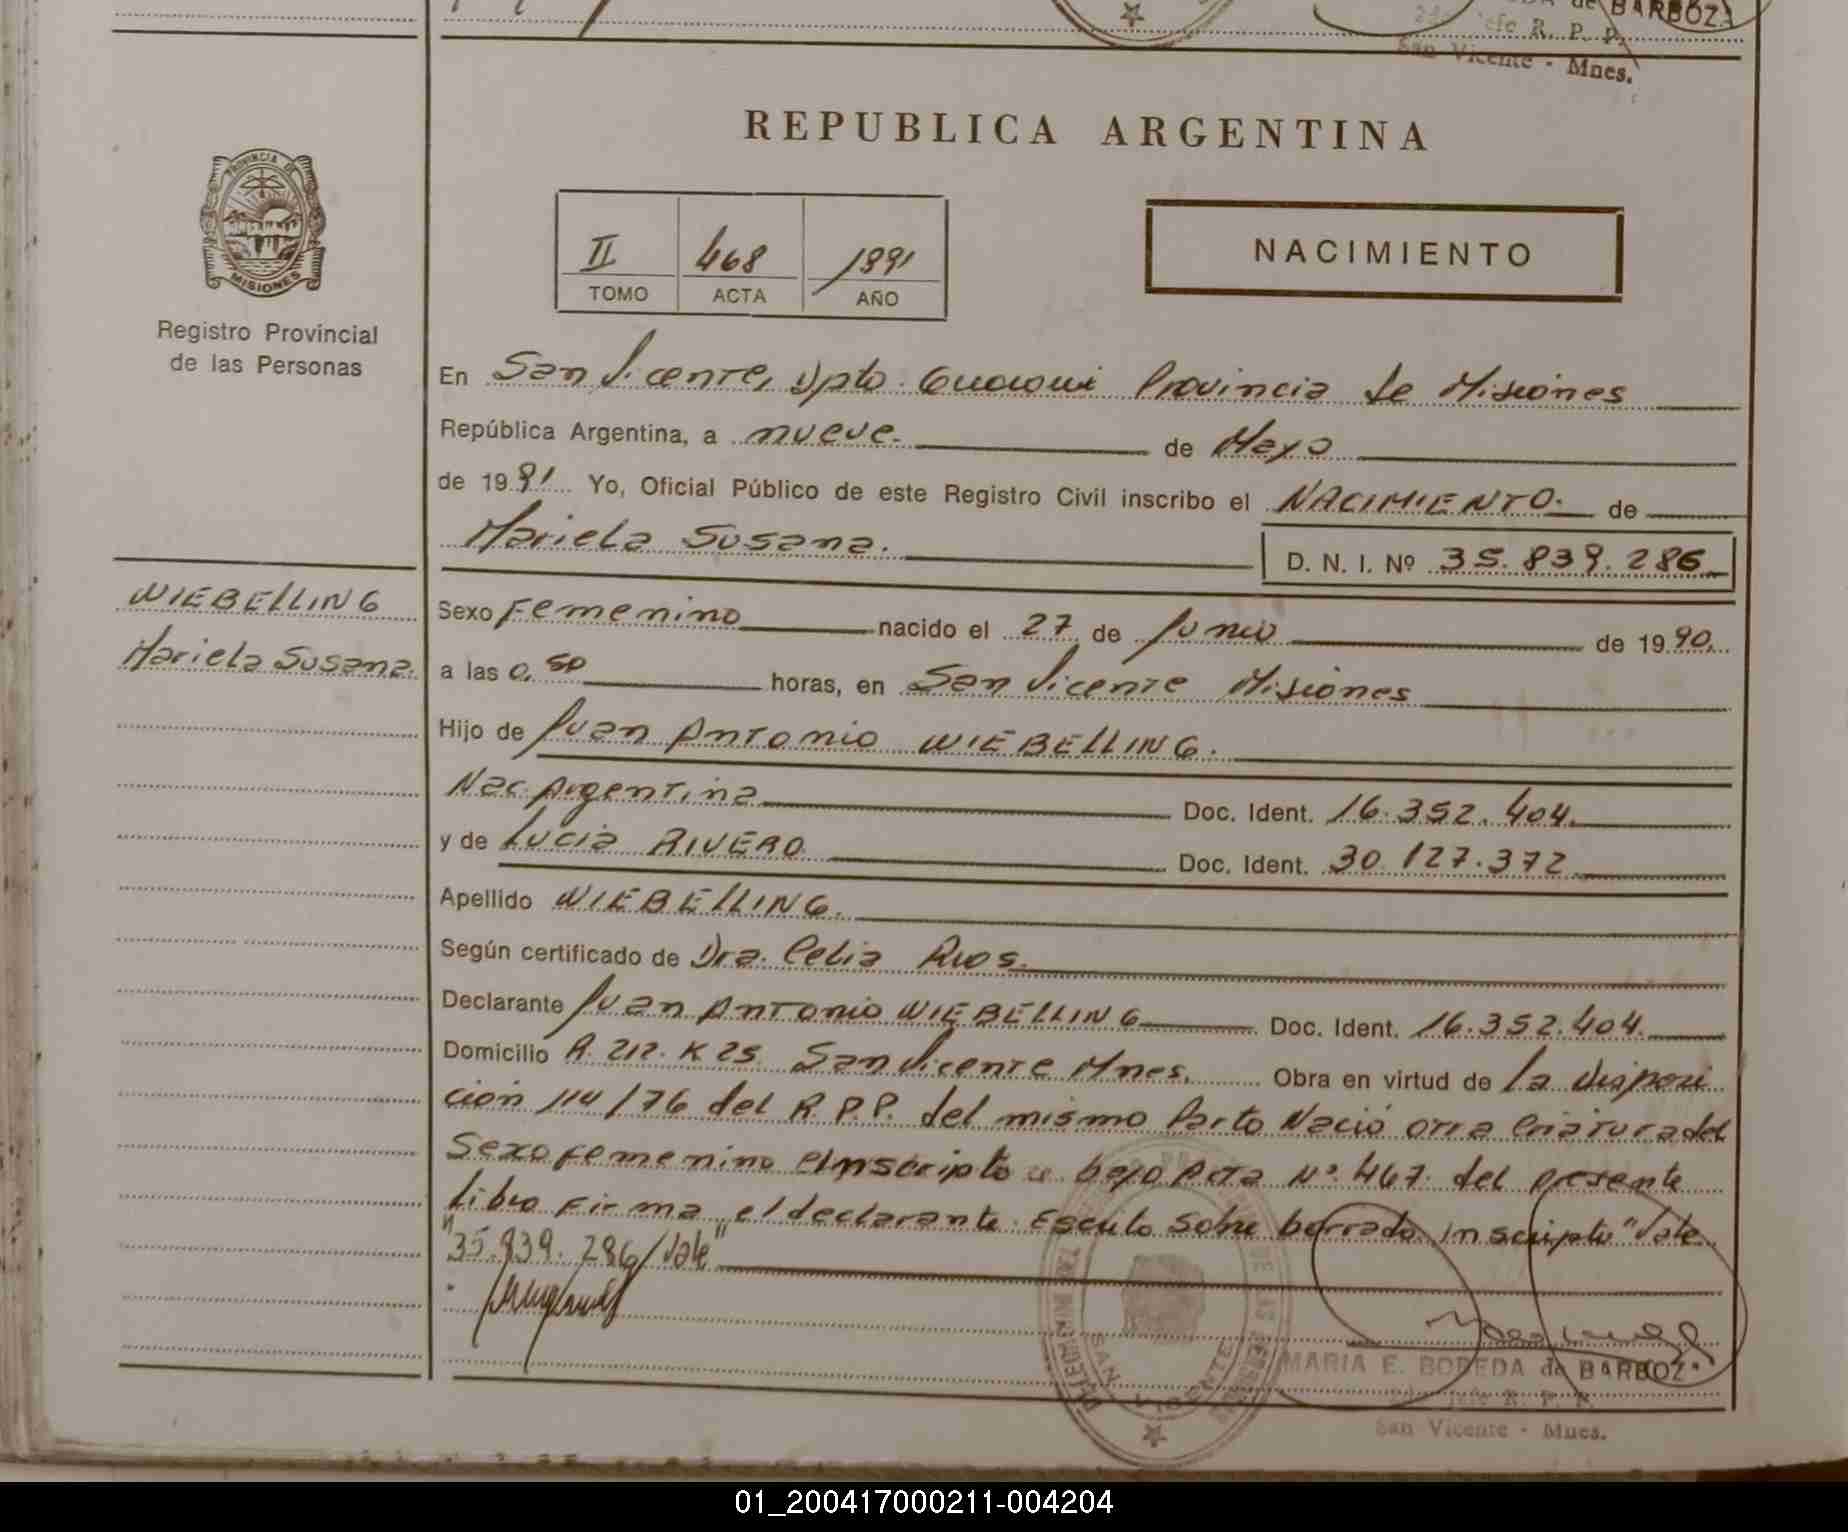 de BARBOZ
Jefe R. P. P.
San Vicente - Mnes.
REPUBLICA ARGENTINA
PROVINCIA DE
MISIONES
Registro Provincial
de las Personas
II 468 1991
TOMO ACTA AÑO
NACIMIENTO
En San Vicente, Dpto. Guarani Provincia de Misiones
República Argentina, a nueve. de Mayo
de 1991 Yo, Oficial Público de este Registro Civil inscribo el NACIMIENTO. de
Mariela Susana.
D. N. I. Nº 35.839.286
WIEBELLING
Mariela Susana.
Sexo Femenino nacido el 27 de Junio de 1990.
a las 0,50 horas, en San Vicente Misiones
Hijo de Juan Antonio WIEBELLING.
Nac. Argentina Doc. Ident. 16.352.404.
y de Lucia RIVERO Doc. Ident. 30.127.372
Apellido WIEBELLING.
Según certificado de Dra. Celia Rios.
Declarante Juan Antonio WIEBELLING Doc. Ident. 16.352.404.
Domicilio R. 212. K 25. San Vicente Mnes. Obra en virtud de la disposi
ción 114/76 del R.P.P. del mismo Parto Nació otra Criatura del
Sexo femenino e Inscripto bajo Acta Nº 467. del presente
Libro Firma el declarante. Escrito sobre borrado Inscripto "Vale
"35.839.286/Vale"
SAN VICENTE
MARIA E. BOREDA de BARBOZ
Jefe R. P. P.
San Vicente - Mnes.
01_200417000211-004204